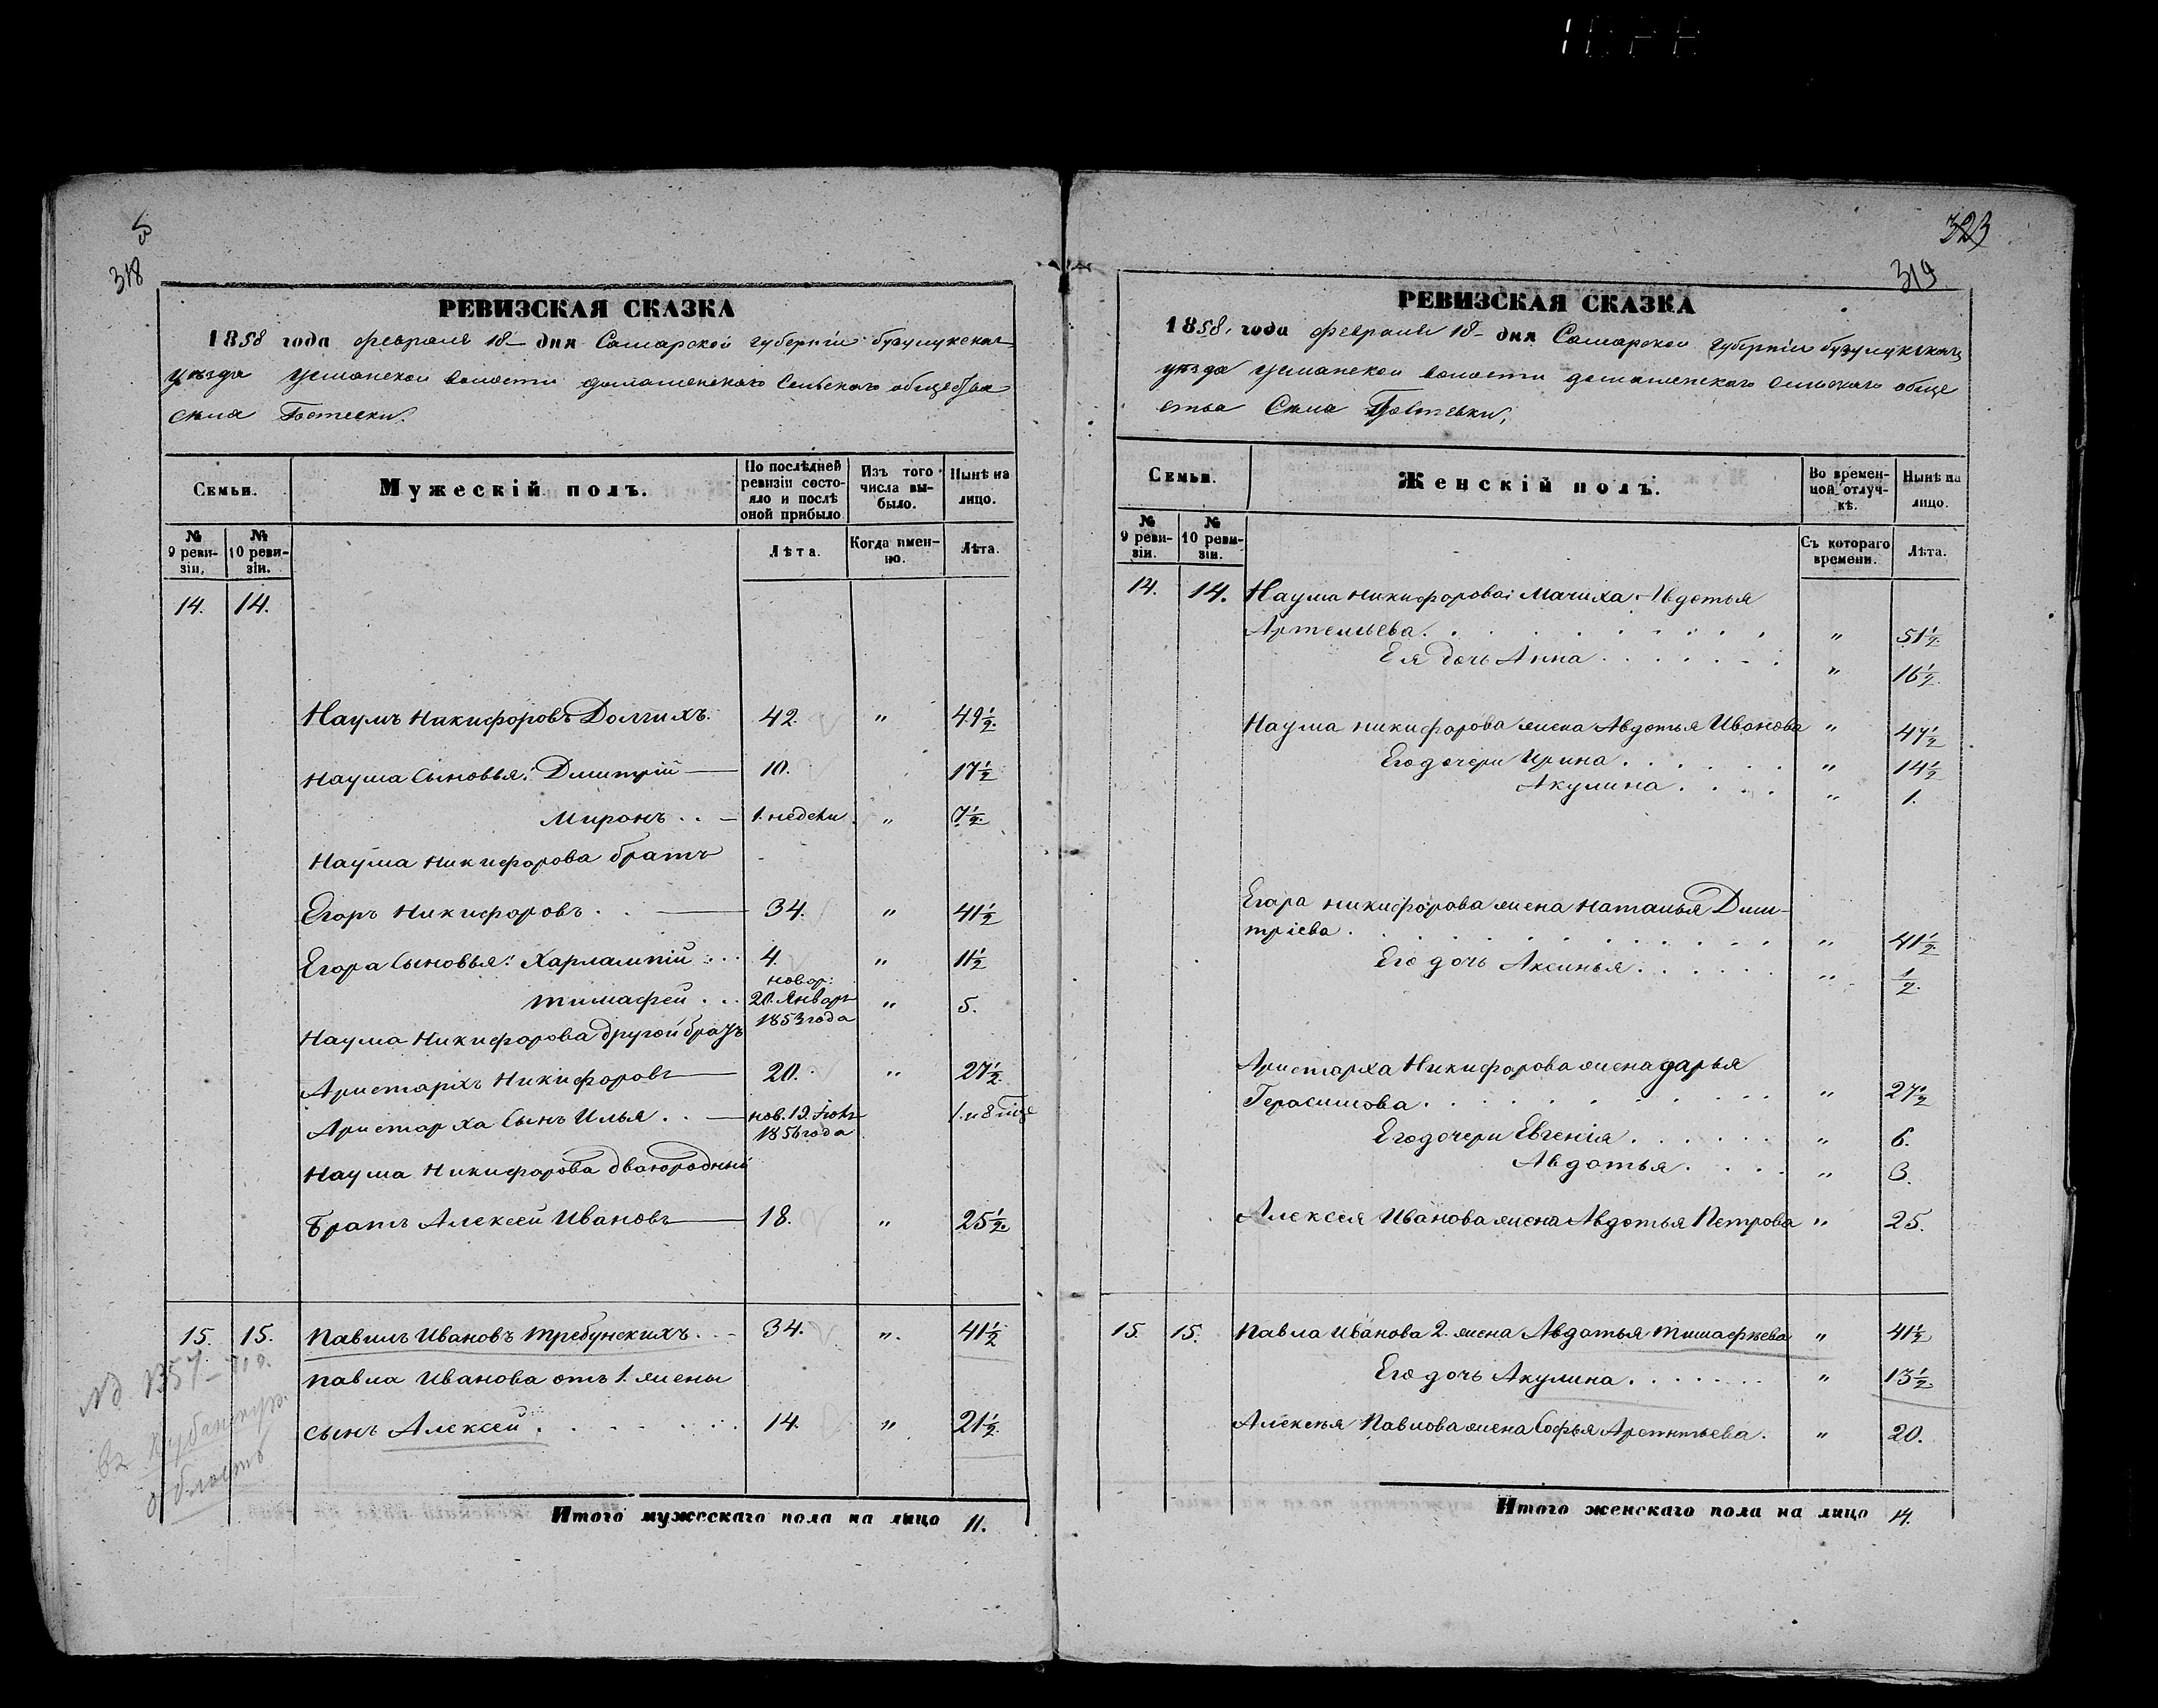 318
РЕВИЗСКАЯ СКАЗКА
1858 года февраля 18 дня Самарской губернiи бузулукскаго
уѣзда Усманской волости домашенскаго Сельскаго общества
села
Семьи.
Мужескiй полъ.
По послѣдней ревизiи состояло и послѣ оной прибыло
Изъ того числа выбыло.
Нынѣ на лицо.
№ 9 ревизiи.
№ 10 ревизiи.
Лѣта.
Когда именно.
Лѣта.
14. 14.
Наумъ Никифоровъ Долгихъ. 42 " 49½
Наума Сыновья: Дмитрiй 10. 17½
Миронъ 1. недели " 7½
Наума Никифорова братъ
Егоръ Никифоровъ 34. " 41½
Егора Сыновья: Харлампiй 4. " 11½
новор:
тимафей 20. Январь " 5.
1853 года
Наума Никифорова другой братъ
Аристархъ Никифоровъ 20. " 27½
Аристарха Сынъ Илья нов. 19. 1. и 8
1856 года
Наума Никифорова двоюродный
Братъ Алексей Ивановъ 18. " 25½
15. 15. Павилъ Ивановъ требунскихъ 34. " 41½
Павла Иванова отъ 1. жены
сынъ Алексей 14. " 21½
№ 1357
въ Кубанскую
область
Итого мужескаго пола на лицо 11.
323
319
РЕВИЗСКАЯ СКАЗКА
1858. года февраля 18 дня Самарской губернiи бузулукскаго
уѣзда усманской волости домашенскаго сельскаго обще
ства Села
Семьи.
Женскiй полъ.
Во временной отлучкѣ.
Нынѣ на лицо.
№ 9 ревизiи.
№ 10 ревизiи.
Съ котораго времени.
Лѣта.
14. 14. Наума Никифорова Мачиха Авдотья
Артемьева. " 51½
Ея дочь Анна " 16½
Наума никифорова жена Авдотья Иванова " 47½
Его дочери Ирина " 14½
Акулина " 1.
Егора никифорова жена Наталья Дми-
трiева " 41½
Его дочь Аксинья " ½
Аристарха Никифорова жена дарья
Герасимова " 27½
Его дочери Евгенiя " 6.
Авдотья " 3.
Алексея Иванова жена Авдотья Петрова " 25.
15. 15. Павла Иванова 2. жена Авдотья тимафѣева " 41½
Его дочь Акулина " 13½
Алексѣя Павлова жена Софья " 20.
Итого женскаго пола на лицо 14.